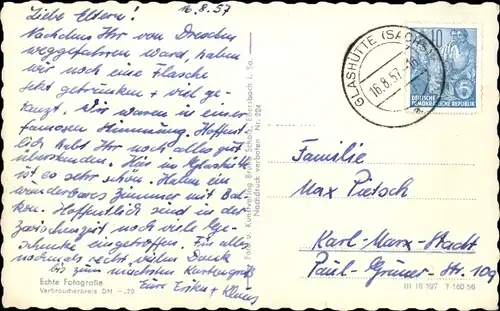 16.8.57
Liebe Eltern!
Nachdem Ihr von Dresden
weggefahren ward, haben
wir noch eine Flasche
Sekt getrunken + viel ge-
tanzt. Wir waren in einer
famosen Stimmung. Hoffent-
lich habt Ihr noch alles gut
überstanden. Hier in Glashütte
ist es sehr schön. Haben ein
wunderbares Zimmer mit Bal-
kon. Hoffentlich sind in der
Zwischenzeit noch viele Ge-
schenke eingetroffen. Für alles
nochmals recht vielen Dank
bis zum nächsten Kartengruß
Eure Erika + Klaus
Echte Fotografie
Verbraucherpreis DM -,20
Foto u. Kunstverlag Bruno Scholz, Ebersbach i. Sa.
Nachdruck verboten Nr. 224
GLASHÜTTE (SACHS)
16.8.57-16
10
DEUTSCHE
DEMOKRATISCHE REPUBLIK
Familie
Max Pietsch
Karl-Marx-Stadt
Paul-Gruner-Str. 109
III 18 197 T 160 56